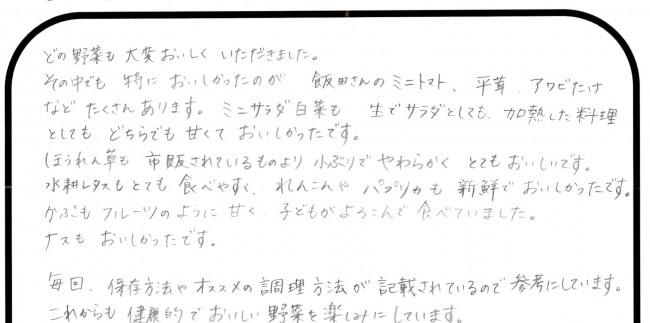 どの野菜も大変おいしくいただきました。
その中でも特においしかったのが飯田さんのミニトマト、平茸、アワビたけ
などたくさんあります。ミニサラダ白菜も生でサラダとしても、加熱した料理
としてもどちらでも甘くておいしかったです。
ほうれん草も市販されているものより小ぶりでやわらかくとてもおいしいです。
水耕レタスもとても食べやすく、れんこんやパプリカも新鮮でおいしかったです。
かぶもフルーツのように甘く、子どもがよろこんで食べていました。
ナスもおいしかったです。
毎回、保存方法やオススメの調理方法が記載されているので参考にしています。
これからも健康的でおいしい野菜を楽しみにしています。